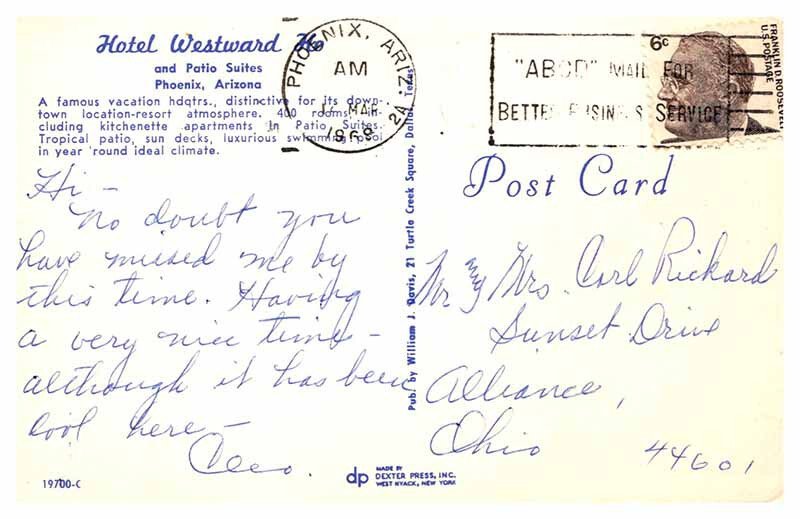 Hotel Westward Ho
and Patio Suites
Phoenix, Arizona
A famous vacation hdqtrs., distinctive for its down-
town location-resort atmosphere. 400 rooms, in-
cluding kitchenette apartments in Patio Suites.
Tropical patio, sun decks, luxurious swimming pool
in year 'round ideal climate.
PHOENIX, ARIZ.
AM
MAR
24
"ABCD" MAIL FOR
BETTER BUSINESS SERVICE
6c
FRANKLIN D. ROOSEVELT
U.S. POSTAGE
Post Card
Hi -
No doubt you
have missed me by
this time. Having
a very nice time -
although it has been
cool here -
Cleo.
Pub. by William J. Davis, 21 Turtle Creek Square, Dallas, Texas
Mr & Mrs. Carl Rickard
Sunset Drive
Alliance,
Ohio 44601
19700-C
dp
MADE BY
DEXTER PRESS, INC.
WEST NYACK, NEW YORK